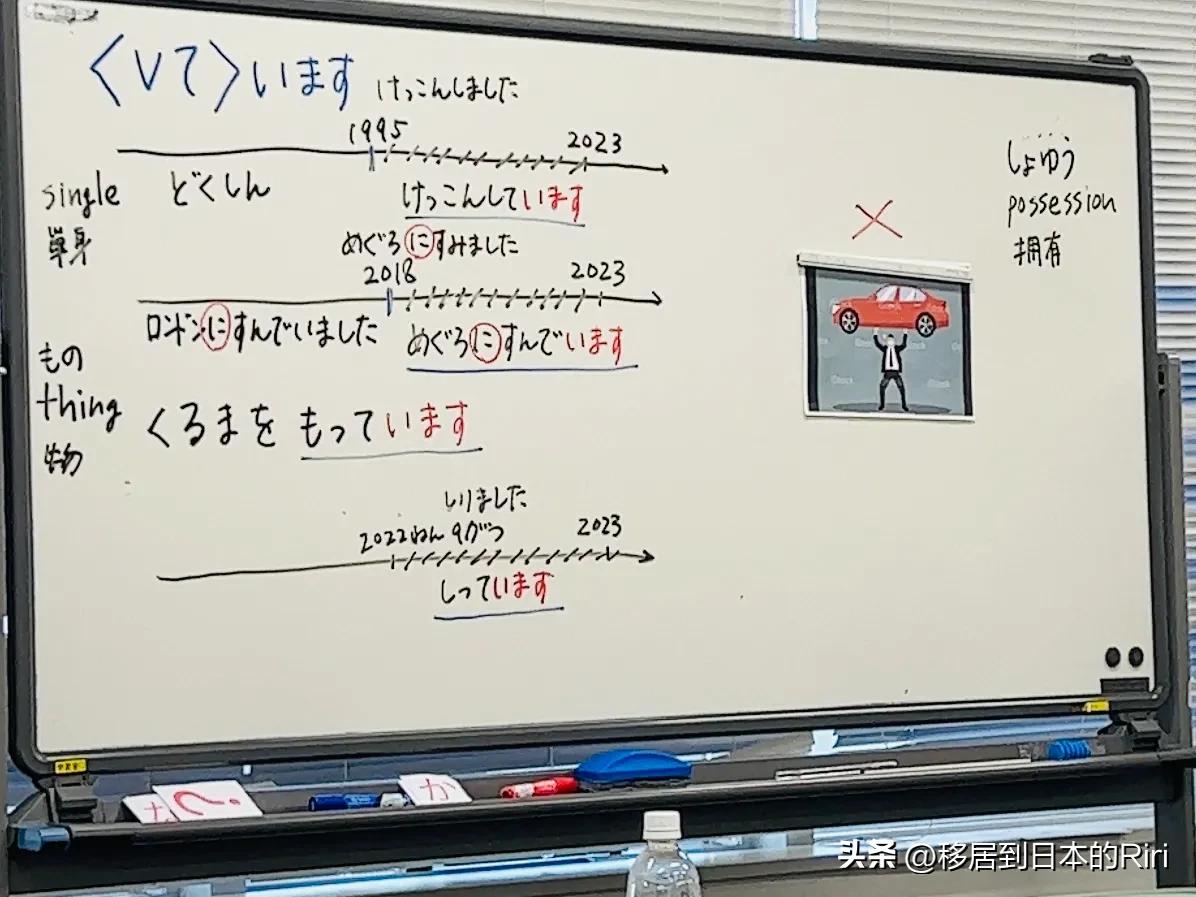 〈Vて〉います けっこんしました
1995 2023
single どくしん けっこんしています
単身
めぐろにすみました
2018 2023
ロンドンにすんでいました めぐろにすんでいます
もの
thing くるまをもっています
物
しりました
2022ねん9がつ 2023
しっています
しょゆう
possession
拥有
iStock
か
?
头条 @移居到日本的Riri